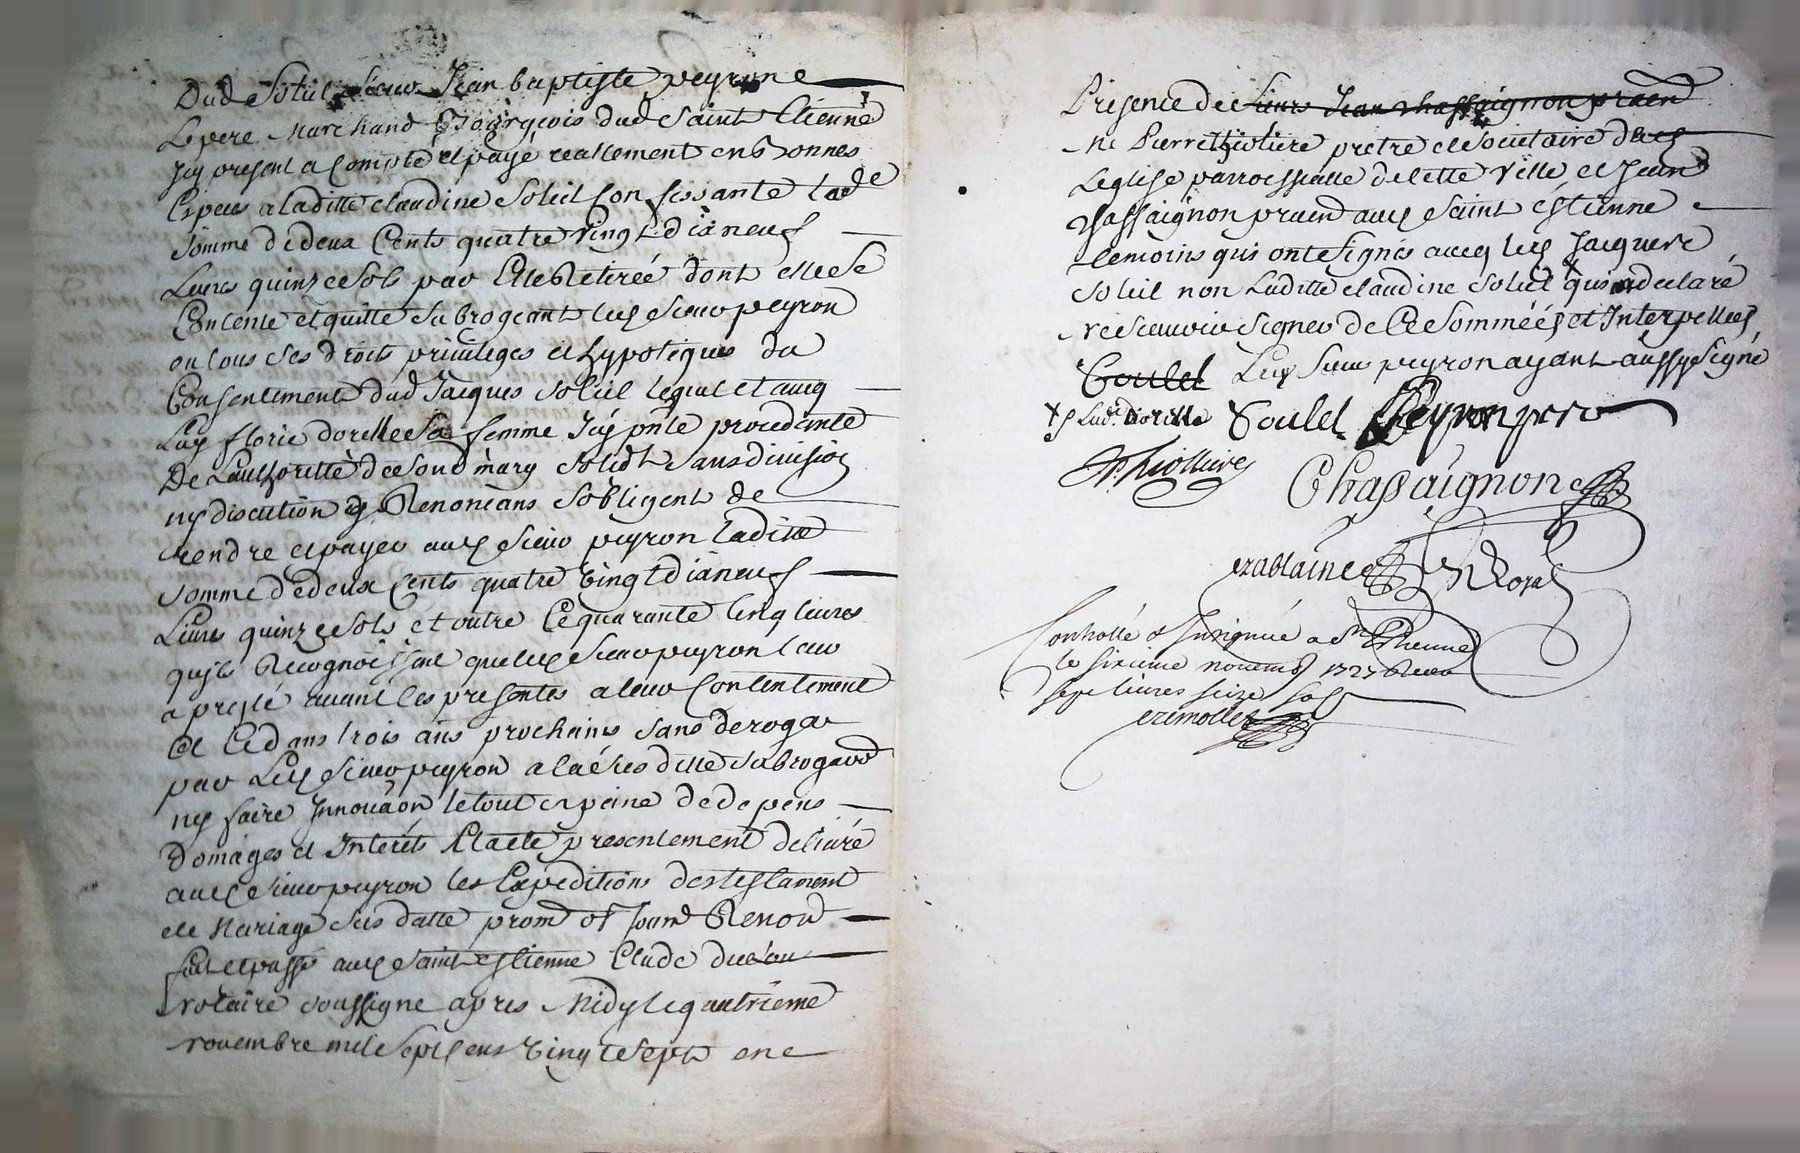 Dud Soleil Sieur Jean baptiste peyron
Le pere Marchand Bourgeois dud Saint Etienne
Icy present a Compté et payé reallement en bonnes
Especes a laditte claudine Soleil Confessante lade
Somme de deux Cents quatre vingt dix neuf
Livres quinze sols par Elle Retirée dont elle se
Contente et quitte Subrogeant led Sieur peyron
en tous ses droits privileges et hypoteques du
Consentement dud Jacques Soleil lequel et aveq
Luy florie dorelle Sa femme Icy pnte procedante
De L'authoritté de son d mary solidt sans division
ny discution y Renonçans s'obligent de
rendre et payer aud Sieur peyron laditte
somme de deux Cents quatre vingt dix neuf
Livres quinze sols et outre Ce quarante Cinq livres
qu'ils Recognoissent que led Sieur peyron leur
a presté avant les presentes a leur Contentement
Et Ce dans trois ans prochains sans deroger
par Led Sieur peyron a la susditte subrogaon
ny faire Innovaon le tout a peine de depens
Domages et Interets Et a esté presentement delivré
aud Sieur peyron les Expeditions des testament
et Mariage sus datté prom ob soum Renon
fait et passé aud Saint Estienne Etude du
notaire soussigne apres Midy le quatrieme
novembre mil Sept Cens vingt Sept en
Presence de Sieurs Jean Chassaignon praen
Me Pierre Thioliere pretre et Societaire de
L'eglise parroissialle de Cette ville et Jean
Chassaignon praen aud Saint Estienne
temoins qui ont signés avecq led Jacques
Soleil non Laditte claudine Soleil qui a declaré
ne scavoir signer de Ce Sommées et Interpellées
Soulel Led Sieur peyron ayant aussy signé
x et lad. dorelle Soulel Peyron pere
Thiolliere
Chassaignon
Controllé & Insignué a St Ethienne
le sixieme novemb 1727 Receu
sept livres seize sols